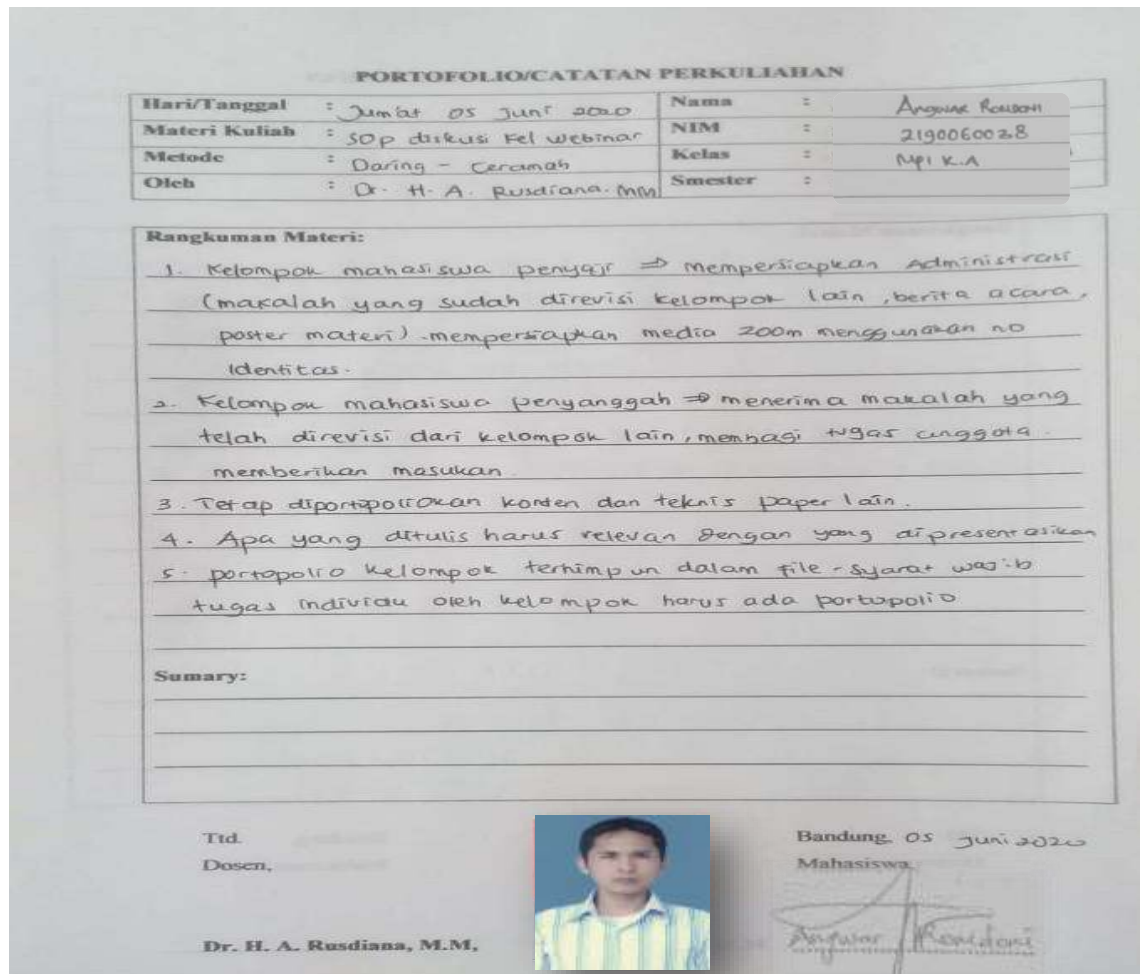 PORTOFOLIO/CATATAN PERKULIAHAN
Hari/Tanggal : Jum'at 05 Juni 2020 Nama : Angwar Roudoni
Materi Kuliah : SOP diskusi Kel Webinar NIM : 2190060028
Metode : Daring - Ceramah Kelas : MPI K.A
Oleh : Dr. H. A. Rusdiana. MM Smester :
Rangkuman Materi:
1. Kelompok mahasiswa penyaji ⇒ mempersiapkan Administrasi
(makalah yang sudah direvisi kelompok lain, berita acara,
poster materi) - mempersiapkan media zoom menggunakan no
Identitas.
2. Kelompok mahasiswa penyanggah ⇒ menerima makalah yang
telah direvisi dari kelompok lain, membagi tugas anggota.
memberikan masukan.
3. Tetap diportopoliokan konten dan teknis paper lain.
4. Apa yang ditulis harus relevan dengan yang dipresentasikan
5. portopolio kelompok terhimpun dalam file - syarat wajib
tugas individu oleh kelompok harus ada portopolio
Sumary:
Ttd. Bandung, 05 Juni 2020
Dosen, Mahasiswa,
Dr. H. A. Rusdiana, M.M, Angwar